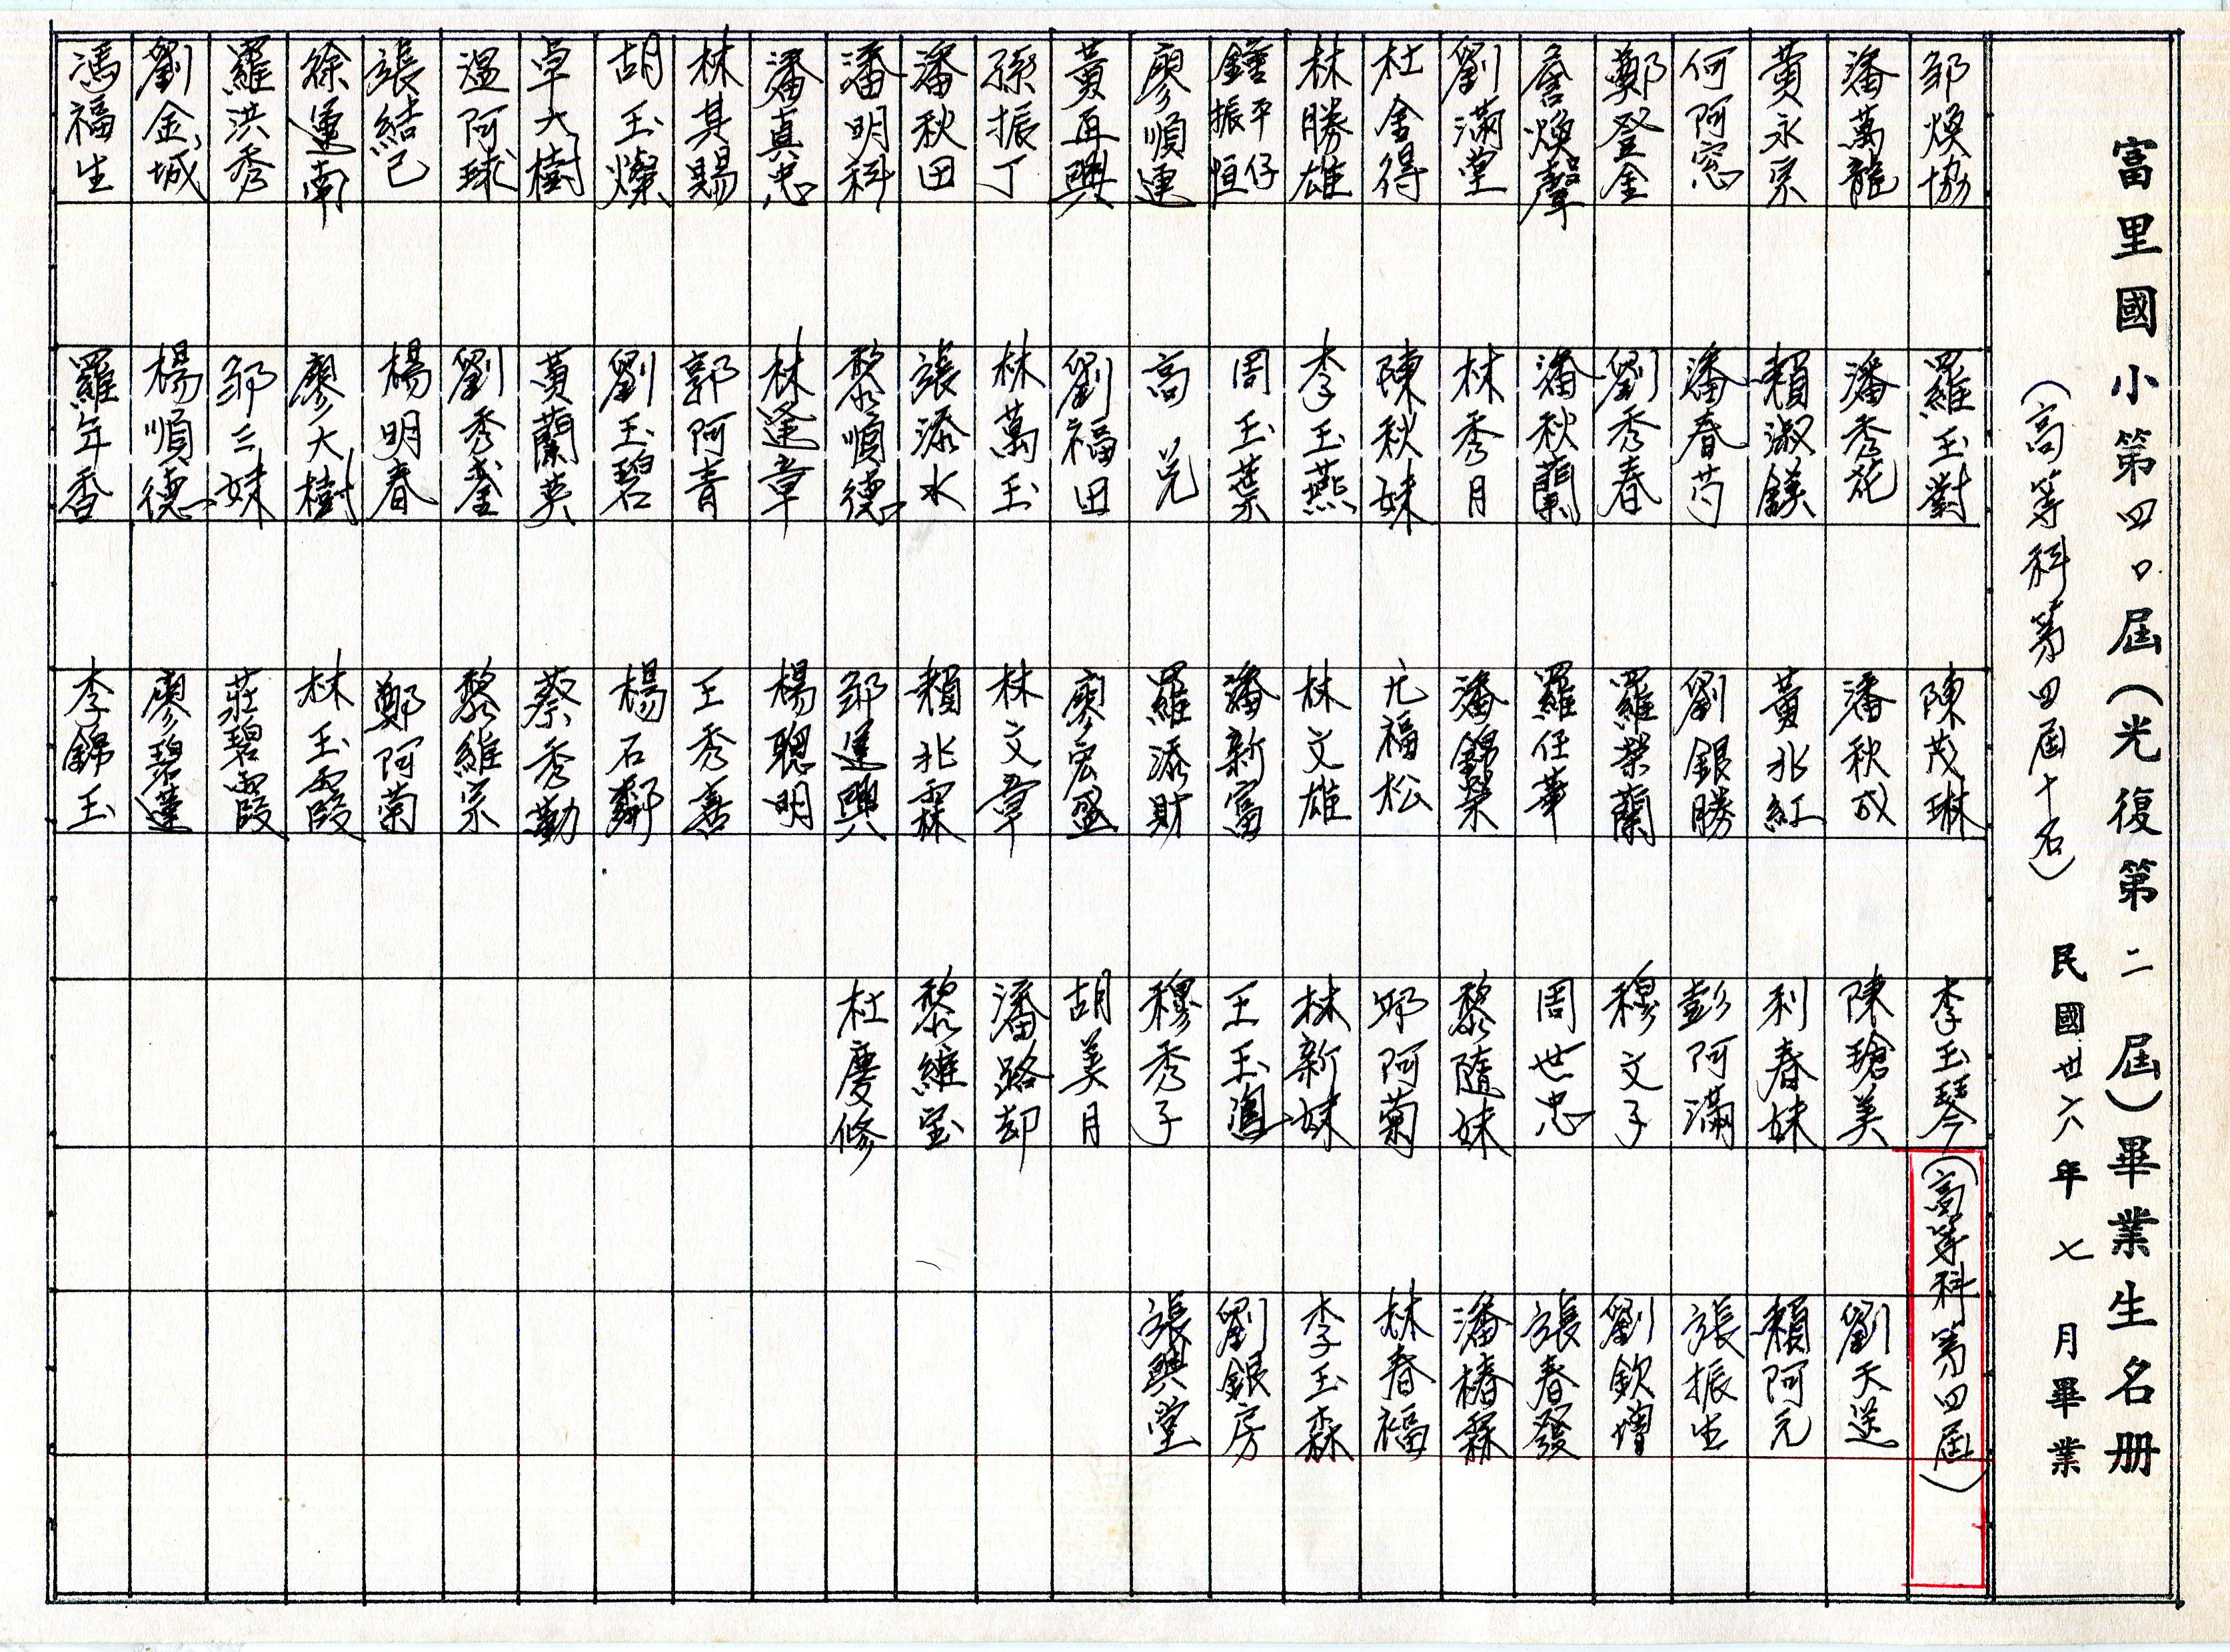 富里國小第四〇屆(光復第二屆)畢業生名册
(高等科第四屆十名)
民國卅六年七月畢業
鄒煥協
潘萬龍
黃永宗
何阿窓
鄭登金
詹煥聲
劉滿堂
杜金得
林勝雄
鍾振平 恒仔
廖順連
黃再興
孫振丁
潘秋田
潘明科
潘真忠
林其賜
胡玉燦
卓大樹
溫阿球
張結己
徐運南
羅洪秀
劉金城
馮福生
羅玉對
潘秀花
賴淑鎂
潘春芍
劉秀春
潘秋蘭
林秀月
陳秋妹
李玉燕
周玉葉
高兌
劉福田
林萬玉
張添水
黎順德
林逢章
郭阿青
劉玉碧
黃蘭英
劉秀鑾
楊明春
廖大樹
鄒三妹
楊順德
羅年香
陳茂琳
潘秋成
黃兆紅
劉銀勝
羅榮蘭
羅任華
潘錦榮
尤福松
林文雄
潘新富
羅添財
廖宏盛
林文章
賴兆霖
鄒運興
楊聰明
王秀喜
楊石鄰
蔡秀勤
黎維宗
鄭阿菊
林玉霞
莊碧霞
廖碧蓮
李錦玉
李玉琴
陳瑲美
利春妹
彭阿滿
穆文子
周世忠
黎隨妹
邱阿菊
林新妹
王玉鳳
穆秀子
胡美月
潘路却
黎維宝
杜慶修
(高等科第四屆)
劉天送
賴阿元
張振生
劉欽增
張春發
潘椿霖
林春福
李玉森
劉銀房
張興堂